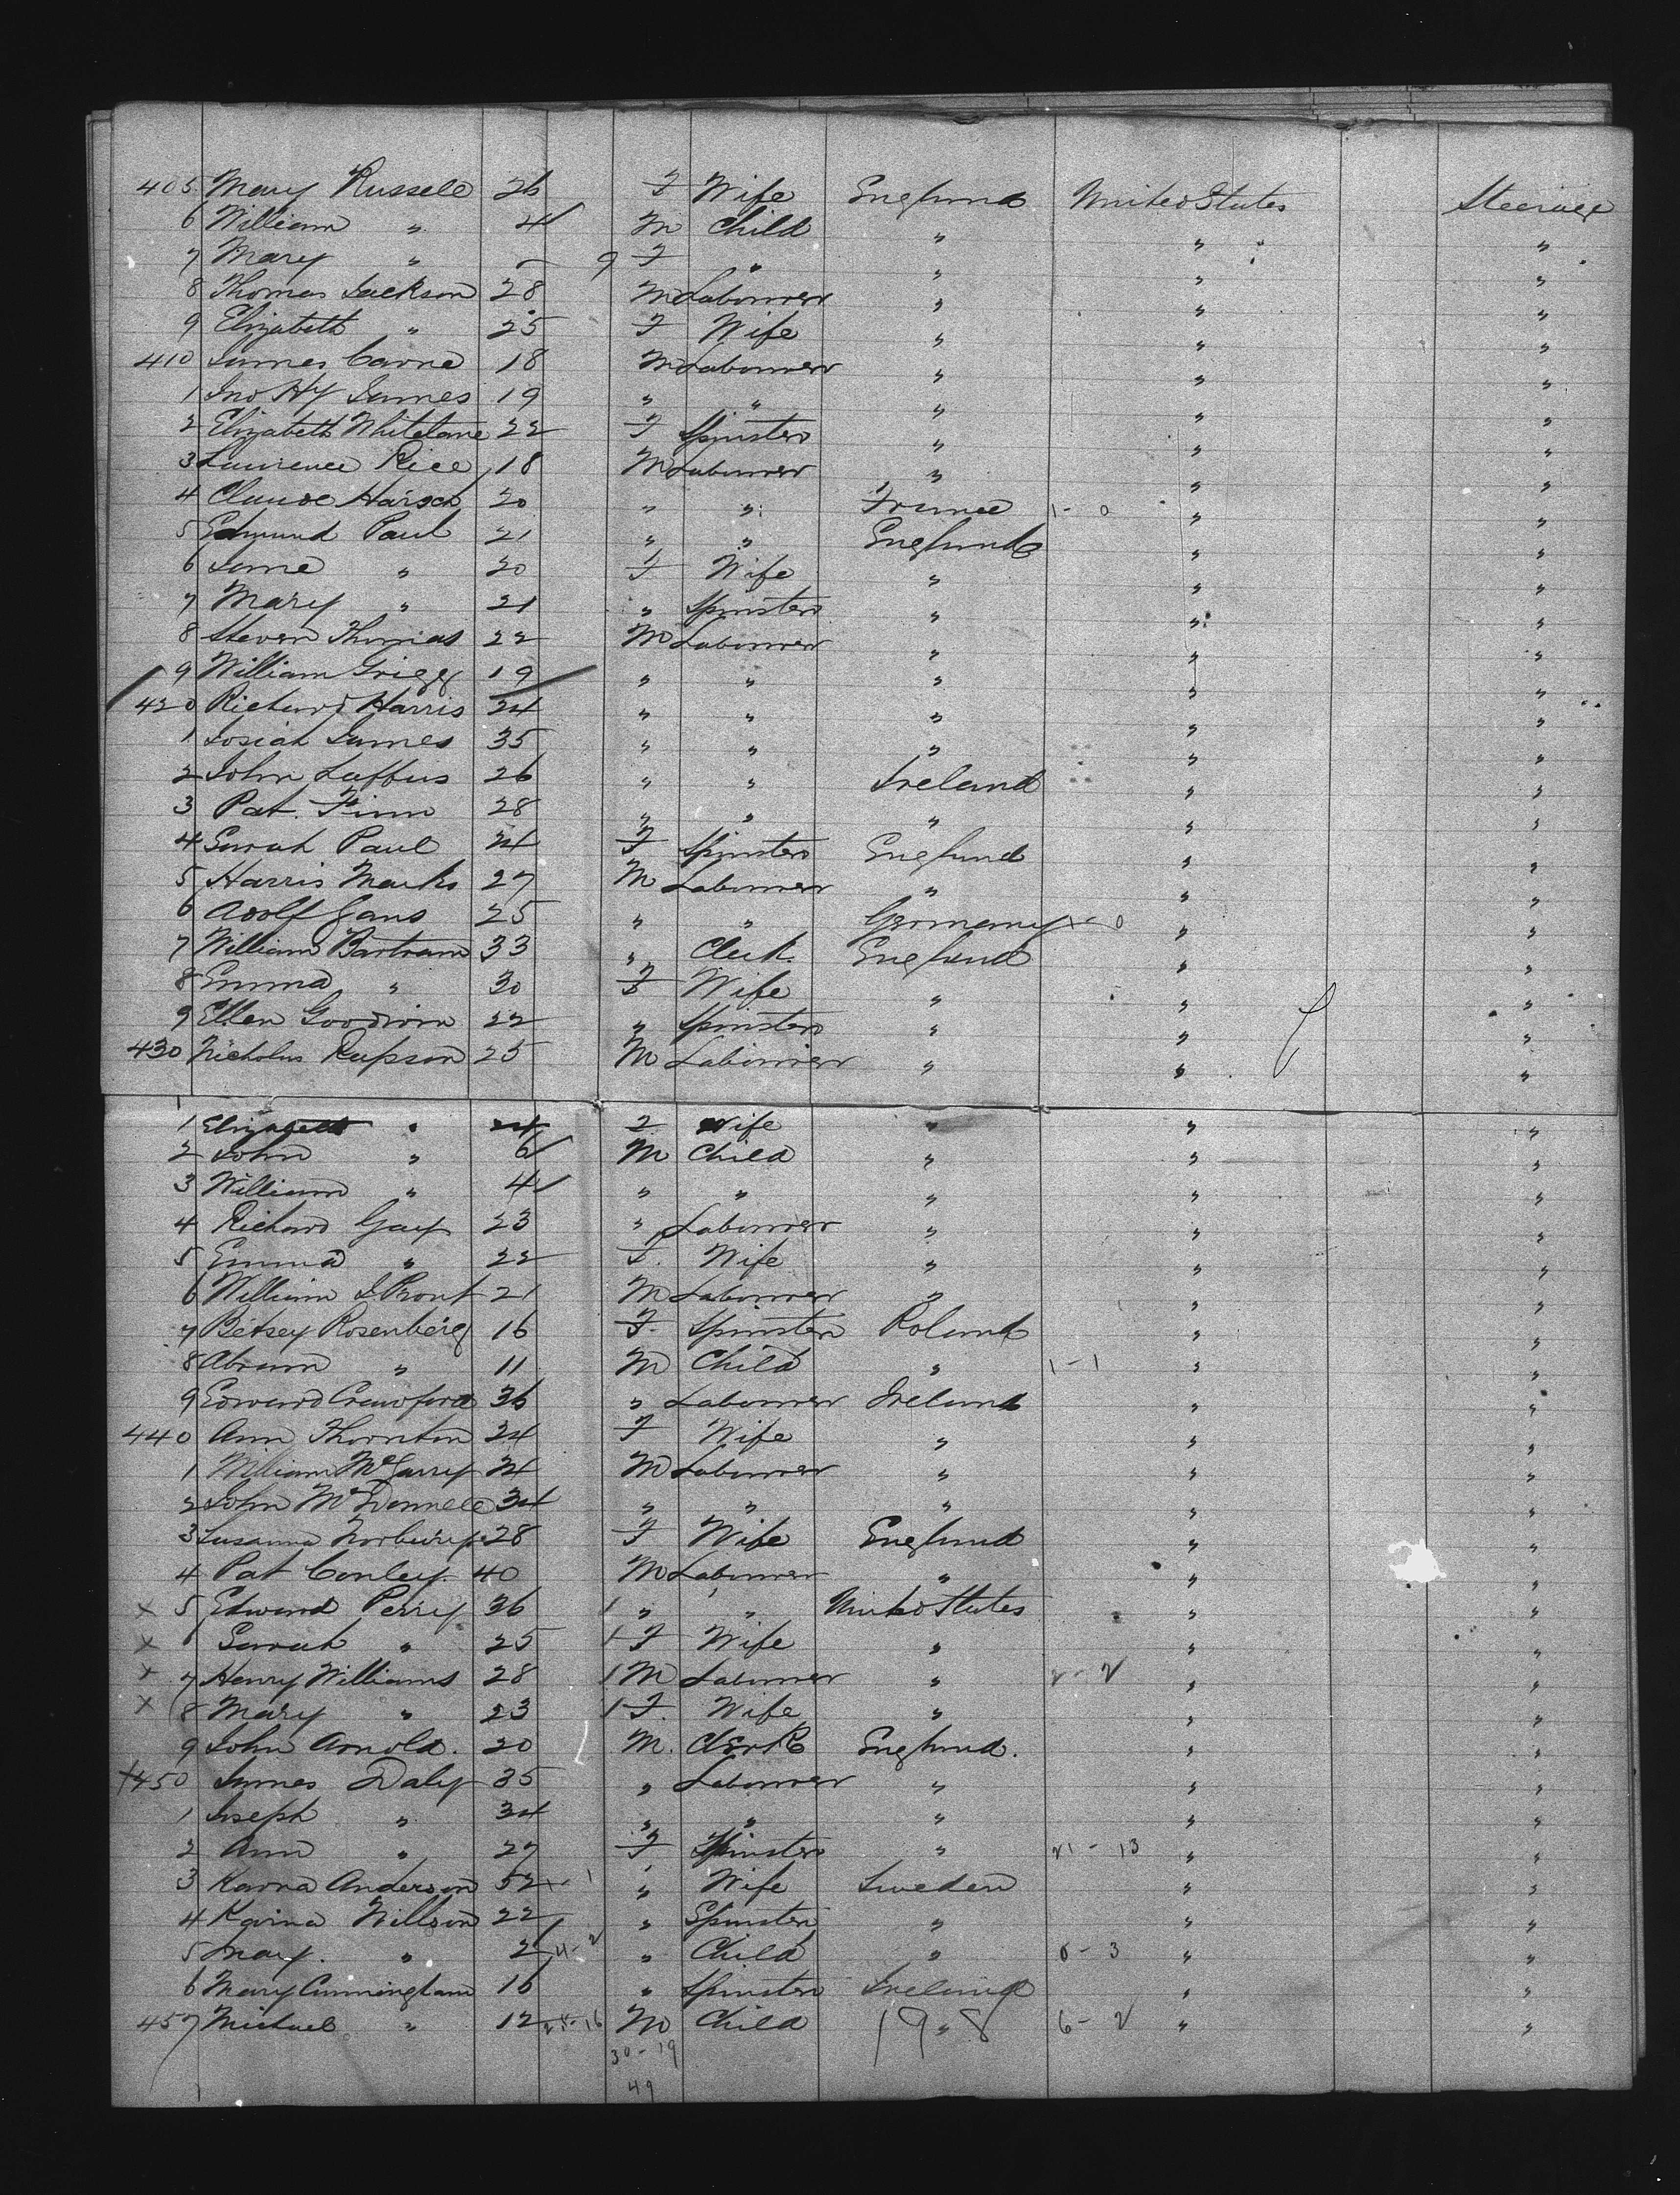 405 Mary Russell 26 F Wife England United States Steerage
6 William " 4 M Child " " "
7 Mary " 9 F " " " "
8 Thomas Jackson 28 M Labourer " " "
9 Elizabeth " 25 F Wife " " "
410 James Carne 18 M Labourer " " "
1 Jno Hy James 19 " " " " "
2 Elizabeth Whitelane 22 F Spinster " " "
3 Laurence Rice 18 M Labourer " " "
4 Claude 20 " " France 1 - 0 " "
5 Edmund Paul 21 " " England " "
6 Jane " 20 F Wife " " "
7 Mary " 21 " Spinster " " "
8 Steven Thomas 22 M Labourer " " "
9 William Grigg 19 " " " " "
420 Richard Harris 24 " " " " "
1 Josiah James 35 " " " " "
2 John Loffus 26 " " Ireland " "
3 Pat. Finn 28 " " " " "
4 Sarah Paul 24 F Spinster England " "
5 Harris Marks 27 M Labourer " " "
6 Adolf Gans 25 " " Germany 1 - 0 " "
7 William Bartram 33 " Clerk England " "
8 Emma " 30 F Wife " " "
9 Ellen Goodwin 22 " Spinster " " "
430 Nicholas Rapson 25 M Labourer " " "
1 Elizabeth " 24 F Wife " " "
2 John " 6 M Child " " "
3 William " 4 " " " " "
4 Richard Guy 23 " Labourer " " "
5 Emma " 22 F. Wife " " "
6 William J Pront 21 M Labourer " " "
7 Betsey Rosenberg 16 F. Spinster Poland " "
8 Abram " 11 M Child " 1 - 1 " "
9 Edward Crawford 36 " Labourer Ireland " "
440 Ann Thornton 24 F Wife " " "
1 William McGarry 24 M Labourer " " "
2 John McDonnell 34 " " " " "
3 Susanna Norbury 28 F Wife England " "
4 Pat Conley 40 M Labourer " " "
x 5 Edward Perry 36 1 " " United States " "
x 6 Sarah " 25 1 F Wife " " "
x 7 Henry Williams 28 1 M Labourer " 2 - 2 " "
x 8 Mary " 23 1 F. Wife " " "
9 John Arnold. 20 M. Clerk England. " "
450 James Daly 35 " Labourer " " "
1 Joseph " 34 " " " " "
2 Ann " 27 F Spinster " 21 - 13 " "
3 Karna Anderson 52 " Wife Sweden " "
4 Karina Willson 22 " Spinster " " "
5 Mary. " 2 " Child " 0 - 3 " "
6 Mary Cunningham 16 " Spinster Ireland " "
457 Michael " 12 M Child " 198 6 - 2 " "
30 - 19
49